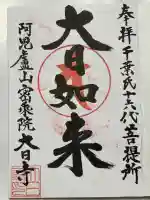 奉拝千葉氏十六代菩提所
大日如来
阿毘盧山密乗院
大日寺